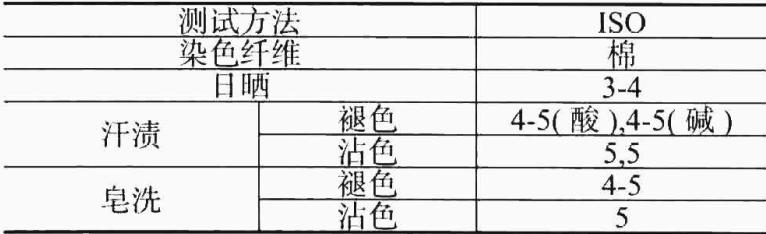 测试方法 ISO
染色纤维 棉
日晒 3-4
汗渍 褪色 4-5(酸),4-5(碱)
沾色 5,5
皂洗 褪色 4-5
沾色 5